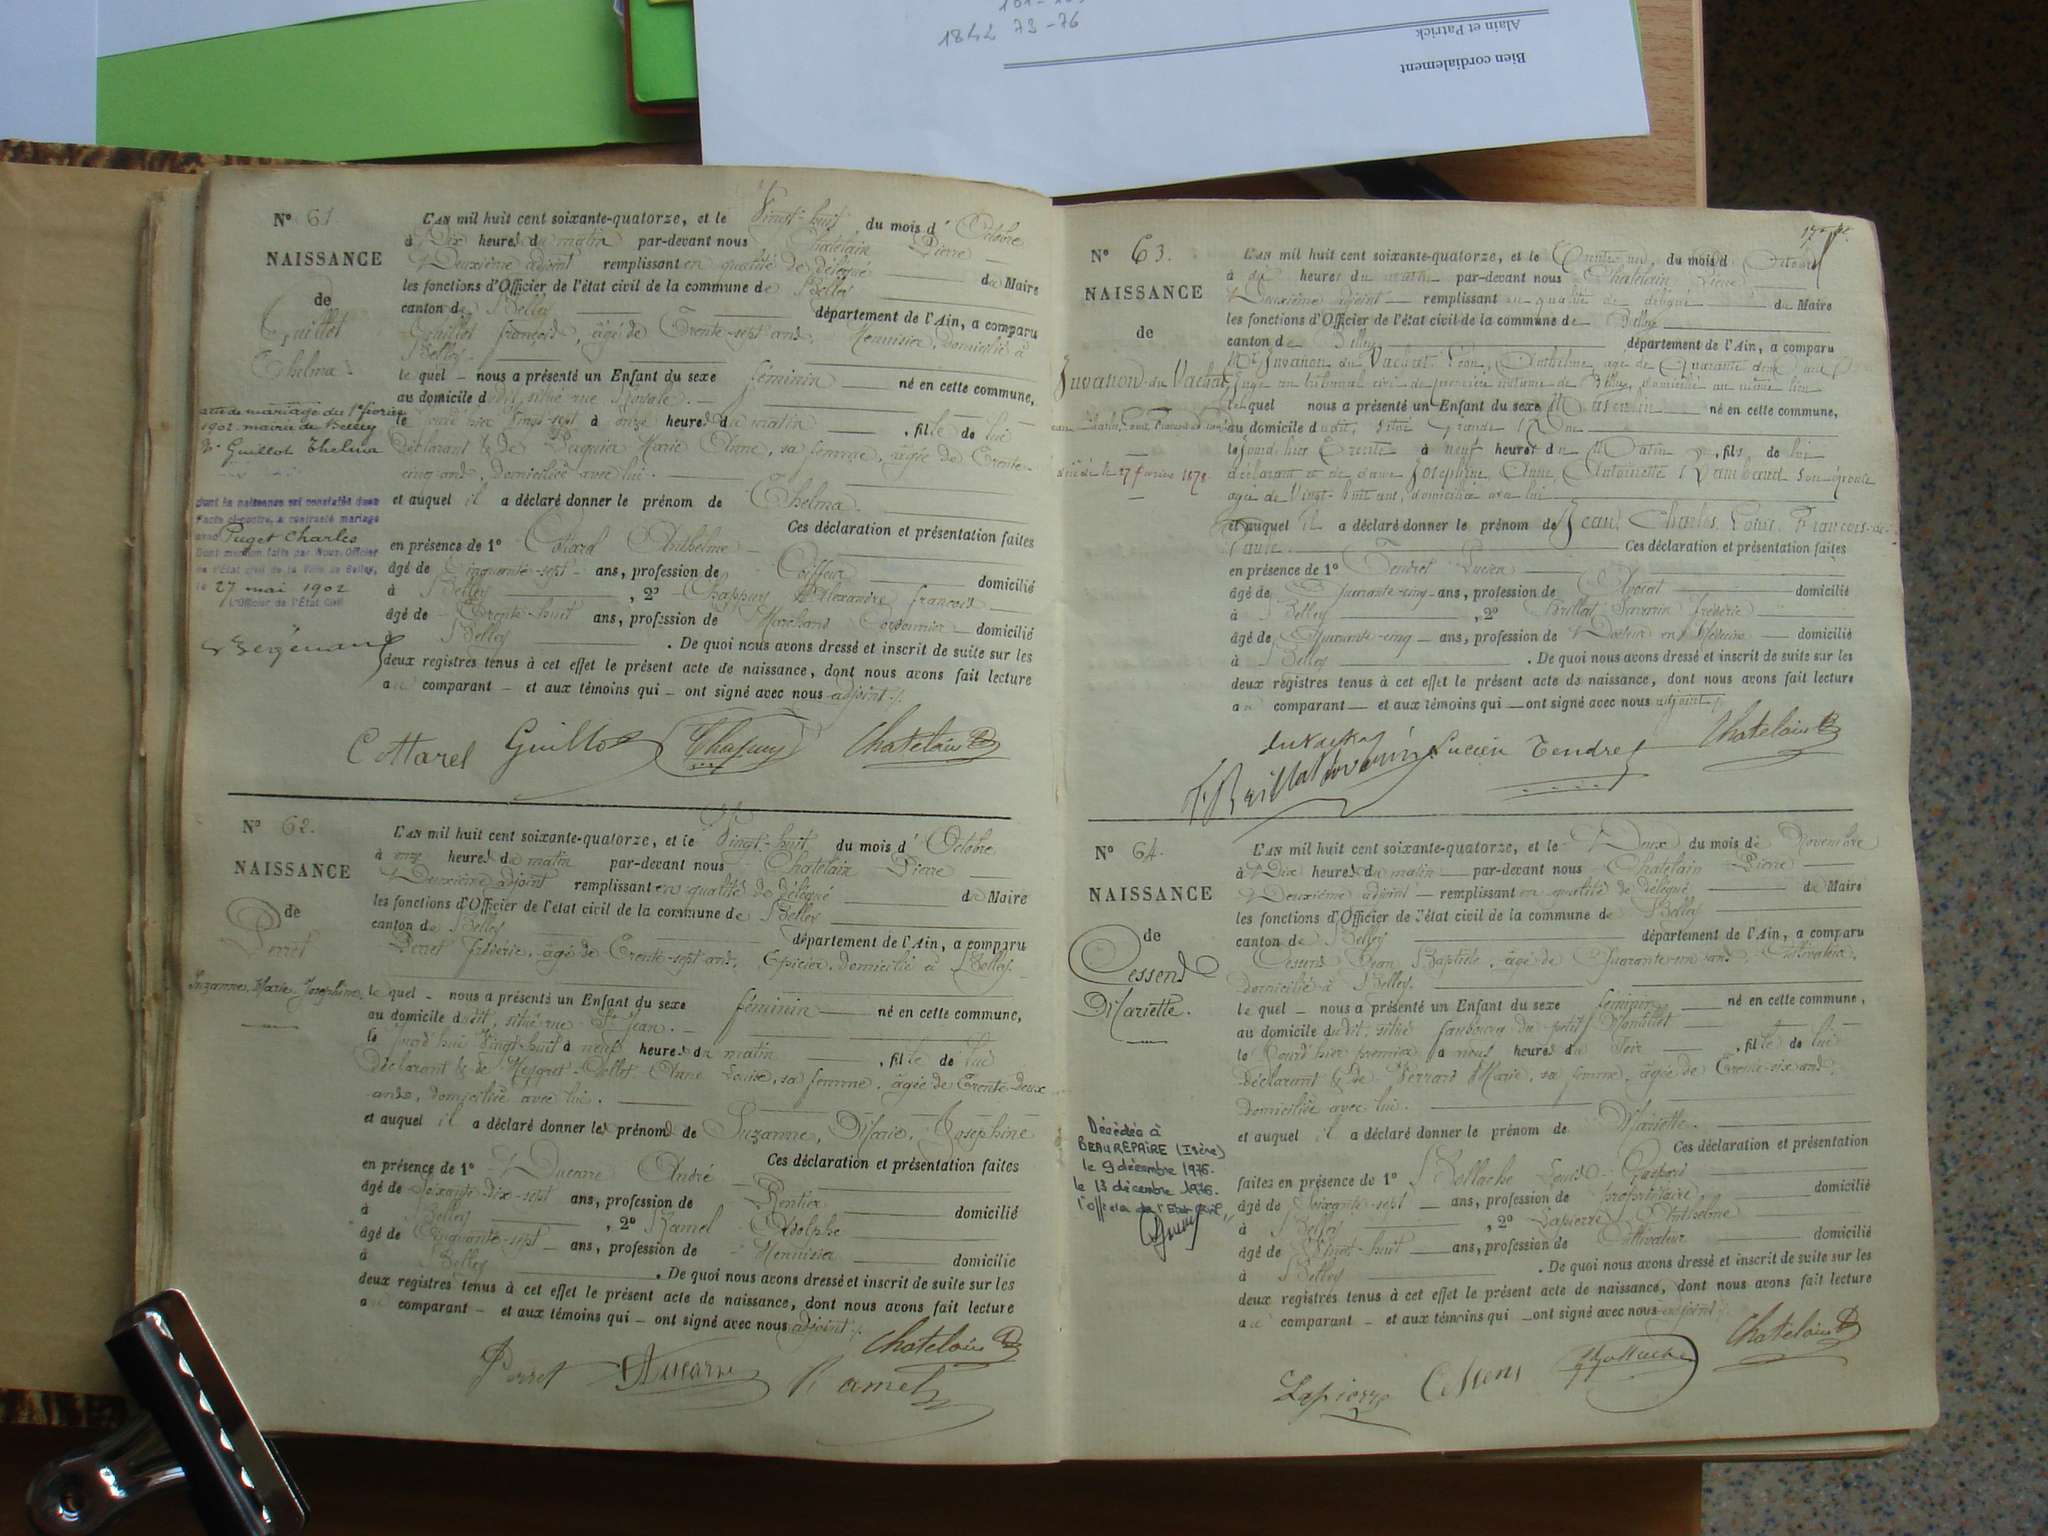 1844 73-76
Alain et Patrick
Bien cordialement
N° 61.
NAISSANCE
de
Guillot
Thelma
acte de mariage du 1er février
1902 mairie de Belley
Guillot Thelma
dont la naissance est constatée dans
l'acte ci-contre, a contracté mariage
avec Puget Charles
Dont mention faite par Nous, Officier
de l'État civil de la Ville de Belley,
le 27 mai 1902
L'Officier de l'État Civil
L'AN mil huit cent soixante-quatorze, et le Vingt-huit du mois d'Octobre
à Dix heures du matin par-devant nous Chatelain Pierre
Deuxième adjoint remplissant en qualité de délégué du Maire
les fonctions d'Officier de l'état civil de la commune de Belley
canton de Belley département de l'Ain, a comparu
Guillot françois, âgé de Trente-sept ans, Menuisier, domicilié à
Belley.
le quel nous a présenté un Enfant du sexe féminin né en cette commune,
au domicile dudit, situé rue Royale.
le jour d'hier Vingt-sept à onze heures du matin, fille de lui
Déclarant & de Marie Anne, sa femme, âgée de Trente-
cinq ans, domiciliée avec lui.
et auquel il a déclaré donner le prénom de Thelma.
Ces déclaration et présentation faites
en présence de 1° Cotarel Anthelme
âgé de Cinquante-sept ans, profession de Coiffeur domicilié
à Belley, 2° Chappuy Alexandre françois
âgé de Trente-huit ans, profession de Marchand Cordonnier domicilié
à Belley. De quoi nous avons dressé et inscrit de suite sur les
deux registres tenus à cet effet le présent acte de naissance, dont nous avons fait lecture
au comparant et aux témoins qui ont signé avec nous adjoint.
Cottarel Guillot Chapuy Chatelain
N° 62.
NAISSANCE
de
Perret
Suzanne, Marie, Josephine.
L'AN mil huit cent soixante-quatorze, et le Vingt-huit du mois d'Octobre
à onze heures du matin par-devant nous Chatelain Pierre
Deuxième adjoint remplissant en qualité de délégué du Maire
les fonctions d'Officier de l'état civil de la commune de Belley
canton de Belley département de l'Ain, a comparu
Perret fréderic, âgé de Trente-sept ans, Epicier, domicilié à Belley.
le quel nous a présenté un Enfant du sexe féminin né en cette commune,
au domicile dudit, situé rue St Jean.
le jourd'hui Vingt-huit à neuf heures du matin, fille de lui
Déclarant & de Anne Louise, sa femme, âgée de Trente-Deux
ans, domiciliée avec lui.
et auquel il a déclaré donner les prénoms de Suzanne, Marie, Josephine
Ces déclaration et présentation faites
en présence de 1° Ducarre André
âgé de Soixante-dix-sept ans, profession de Rentier domicilié
à Belley, 2° Ramel Adolphe
âgé de Cinquante-sept ans, profession de Menuisier domicilié
à Belley. De quoi nous avons dressé et inscrit de suite sur les
deux registres tenus à cet effet le présent acte de naissance, dont nous avons fait lecture
au comparant et aux témoins qui ont signé avec nous adjoint.
Chatelain
Perret Ducarre Ramel
N° 63.
NAISSANCE
de
Juvanon du Vachat
Jean, Charles, Louis, François de Paule
décédé le 27 février 1878
L'AN mil huit cent soixante-quatorze, et le Trente un, du mois d'Octobre
à dix heures du matin par-devant nous Chatelain Pierre
Deuxième adjoint remplissant en qualité de délégué du Maire
les fonctions d'Officier de l'état civil de la commune de Belley
canton de Belley département de l'Ain, a comparu
Mr Juvanon du Vachat Léon, Anthelme agé de Quarante deux ans
Juge au tribunal civil de première instance de Belley, domicilié au même lieu
lequel nous a présenté un Enfant du sexe Masculin né en cette commune,
au domicile dudit, situé Grande Rue
le jourd'hier Trente à neuf heures du Matin, fils de lui
déclarant et de dame Joséphine, Anne, Antoinette Rambaud son épouse
agée de Vingt-huit ans, domiciliée avec lui
et auquel il a déclaré donner le prénom de Jean, Charles, Louis, François-de-
Paule. Ces déclaration et présentation faites
en présence de 1° Tendret Lucien
âgé de Quarante-cinq ans, profession de Avocat domicilié
à Belley, 2° Brillat Savarin Frédéric
âgé de Quarante-cinq ans, profession de Docteur en Médecine domicilié
à Belley. De quoi nous avons dressé et inscrit de suite sur les
deux registres tenus à cet effet le présent acte de naissance, dont nous avons fait lecture
au comparant et aux témoins qui ont signé avec nous adjoint.
du Vachat
F. Brillat Savarin Lucien Tendret Chatelain
N° 64.
NAISSANCE
de
Cessend
Mariette.
Décédée à
BEAUREPAIRE (Isère)
le 9 décembre 1976.
le 13 décembre 1976.
l'officier de l'Etat Civil,
L'AN mil huit cent soixante-quatorze, et le Deux du mois de Novembre
à Dix heures du matin par-devant nous Chatelain Pierre
Deuxième adjoint remplissant en qualité de délégué du Maire
les fonctions d'Officier de l'état civil de la commune de Belley
canton de Belley département de l'Ain, a comparu
Cessend Jean Baptiste, âgé de Quarante-un ans, Cultivateur,
domicilié à Belley.
le quel nous a présenté un Enfant du sexe féminin né en cette commune,
au domicile dudit, situé faubourg du petit Montillet
le jourd'hier premier à neuf heures du soir, fille de lui
déclarant & de Ferrand Marie, sa femme, âgée de Trente-six ans,
domiciliée avec lui.
et auquel il a déclaré donner le prénom de Mariette.
Ces déclaration et présentation
faites en présence de 1° Louis Gaspard
âgé de Soixante-sept ans, profession de propriétaire domicilié
à Belley, 2° Lapierre Anthelme
âgé de Vingt-huit ans, profession de Cultivateur domicilié
à Belley. De quoi nous avons dressé et inscrit de suite sur les
deux registres tenus à cet effet le présent acte de naissance, dont nous avons fait lecture
au comparant et aux témoins qui ont signé avec nous adjoint.
Lapierre Cessens Chatelain